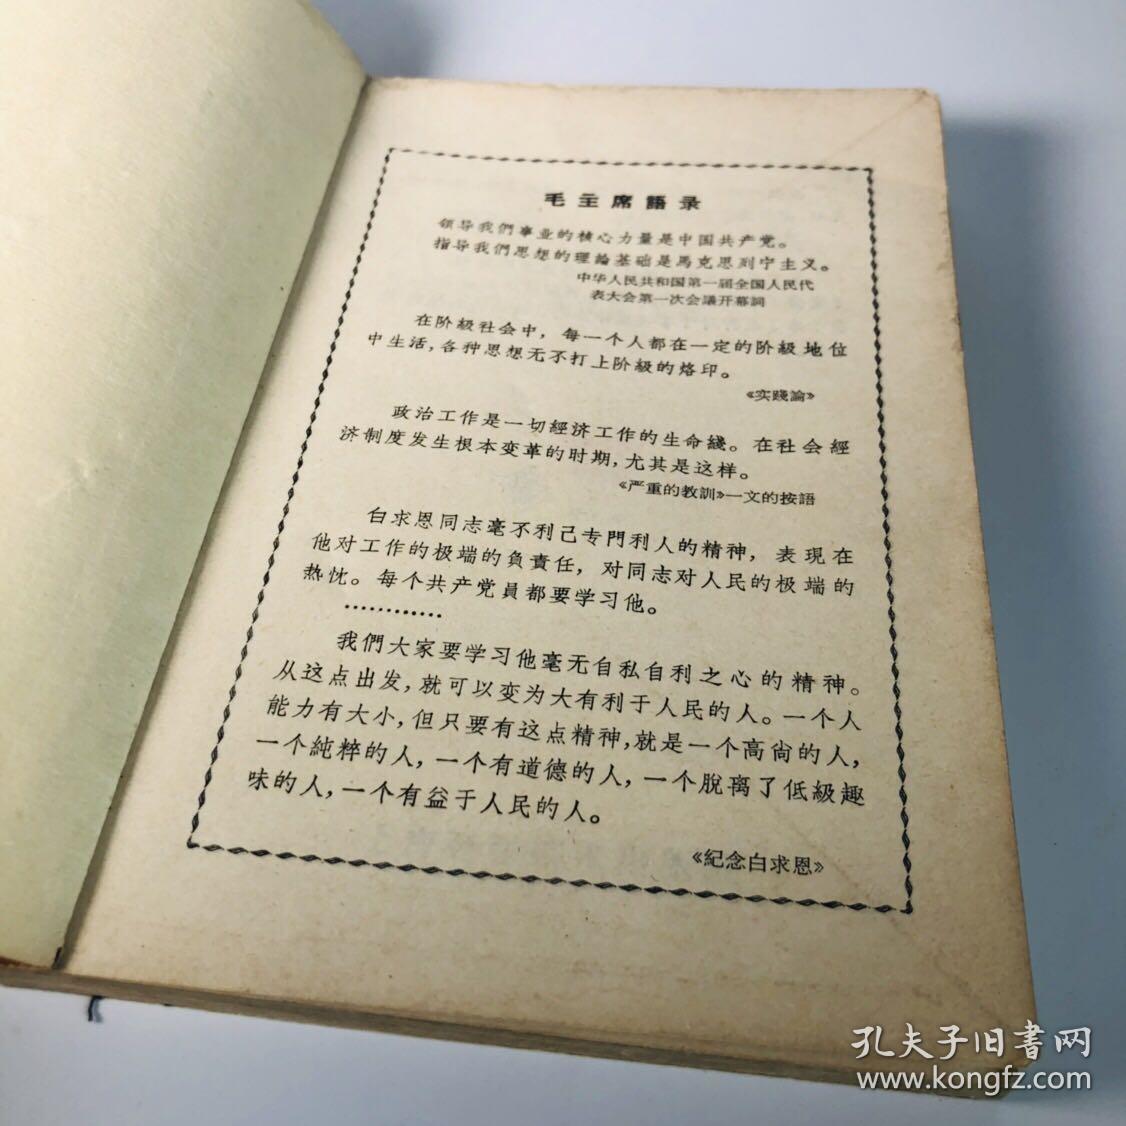 毛主席語录
领导我們事业的核心力量是中国共产党。
指导我們思想的理論基础是馬克思列宁主义。
中华人民共和国第一届全国人民代
表大会第一次会議开幕詞
在阶級社会中，每一个人都在一定的阶級地位
中生活，各种思想无不打上阶級的烙印。
《实踐論》
政治工作是一切經济工作的生命綫。在社会經
济制度发生根本变革的时期，尤其是这样。
《严重的教訓》一文的按語
白求恩同志毫不利己专門利人的精神，表現在
他对工作的极端的負責任，对同志对人民的极端的
热忱。每个共产党員都要学习他。
…………
我們大家要学习他毫无自私自利之心的精神。
从这点出发，就可以变为大有利于人民的人。一个人
能力有大小，但只要有这点精神，就是一个高尙的人，
一个純粹的人，一个有道德的人，一个脫离了低級趣
味的人，一个有益于人民的人。
《紀念白求恩》
孔夫子旧書网
www.kongfz.com